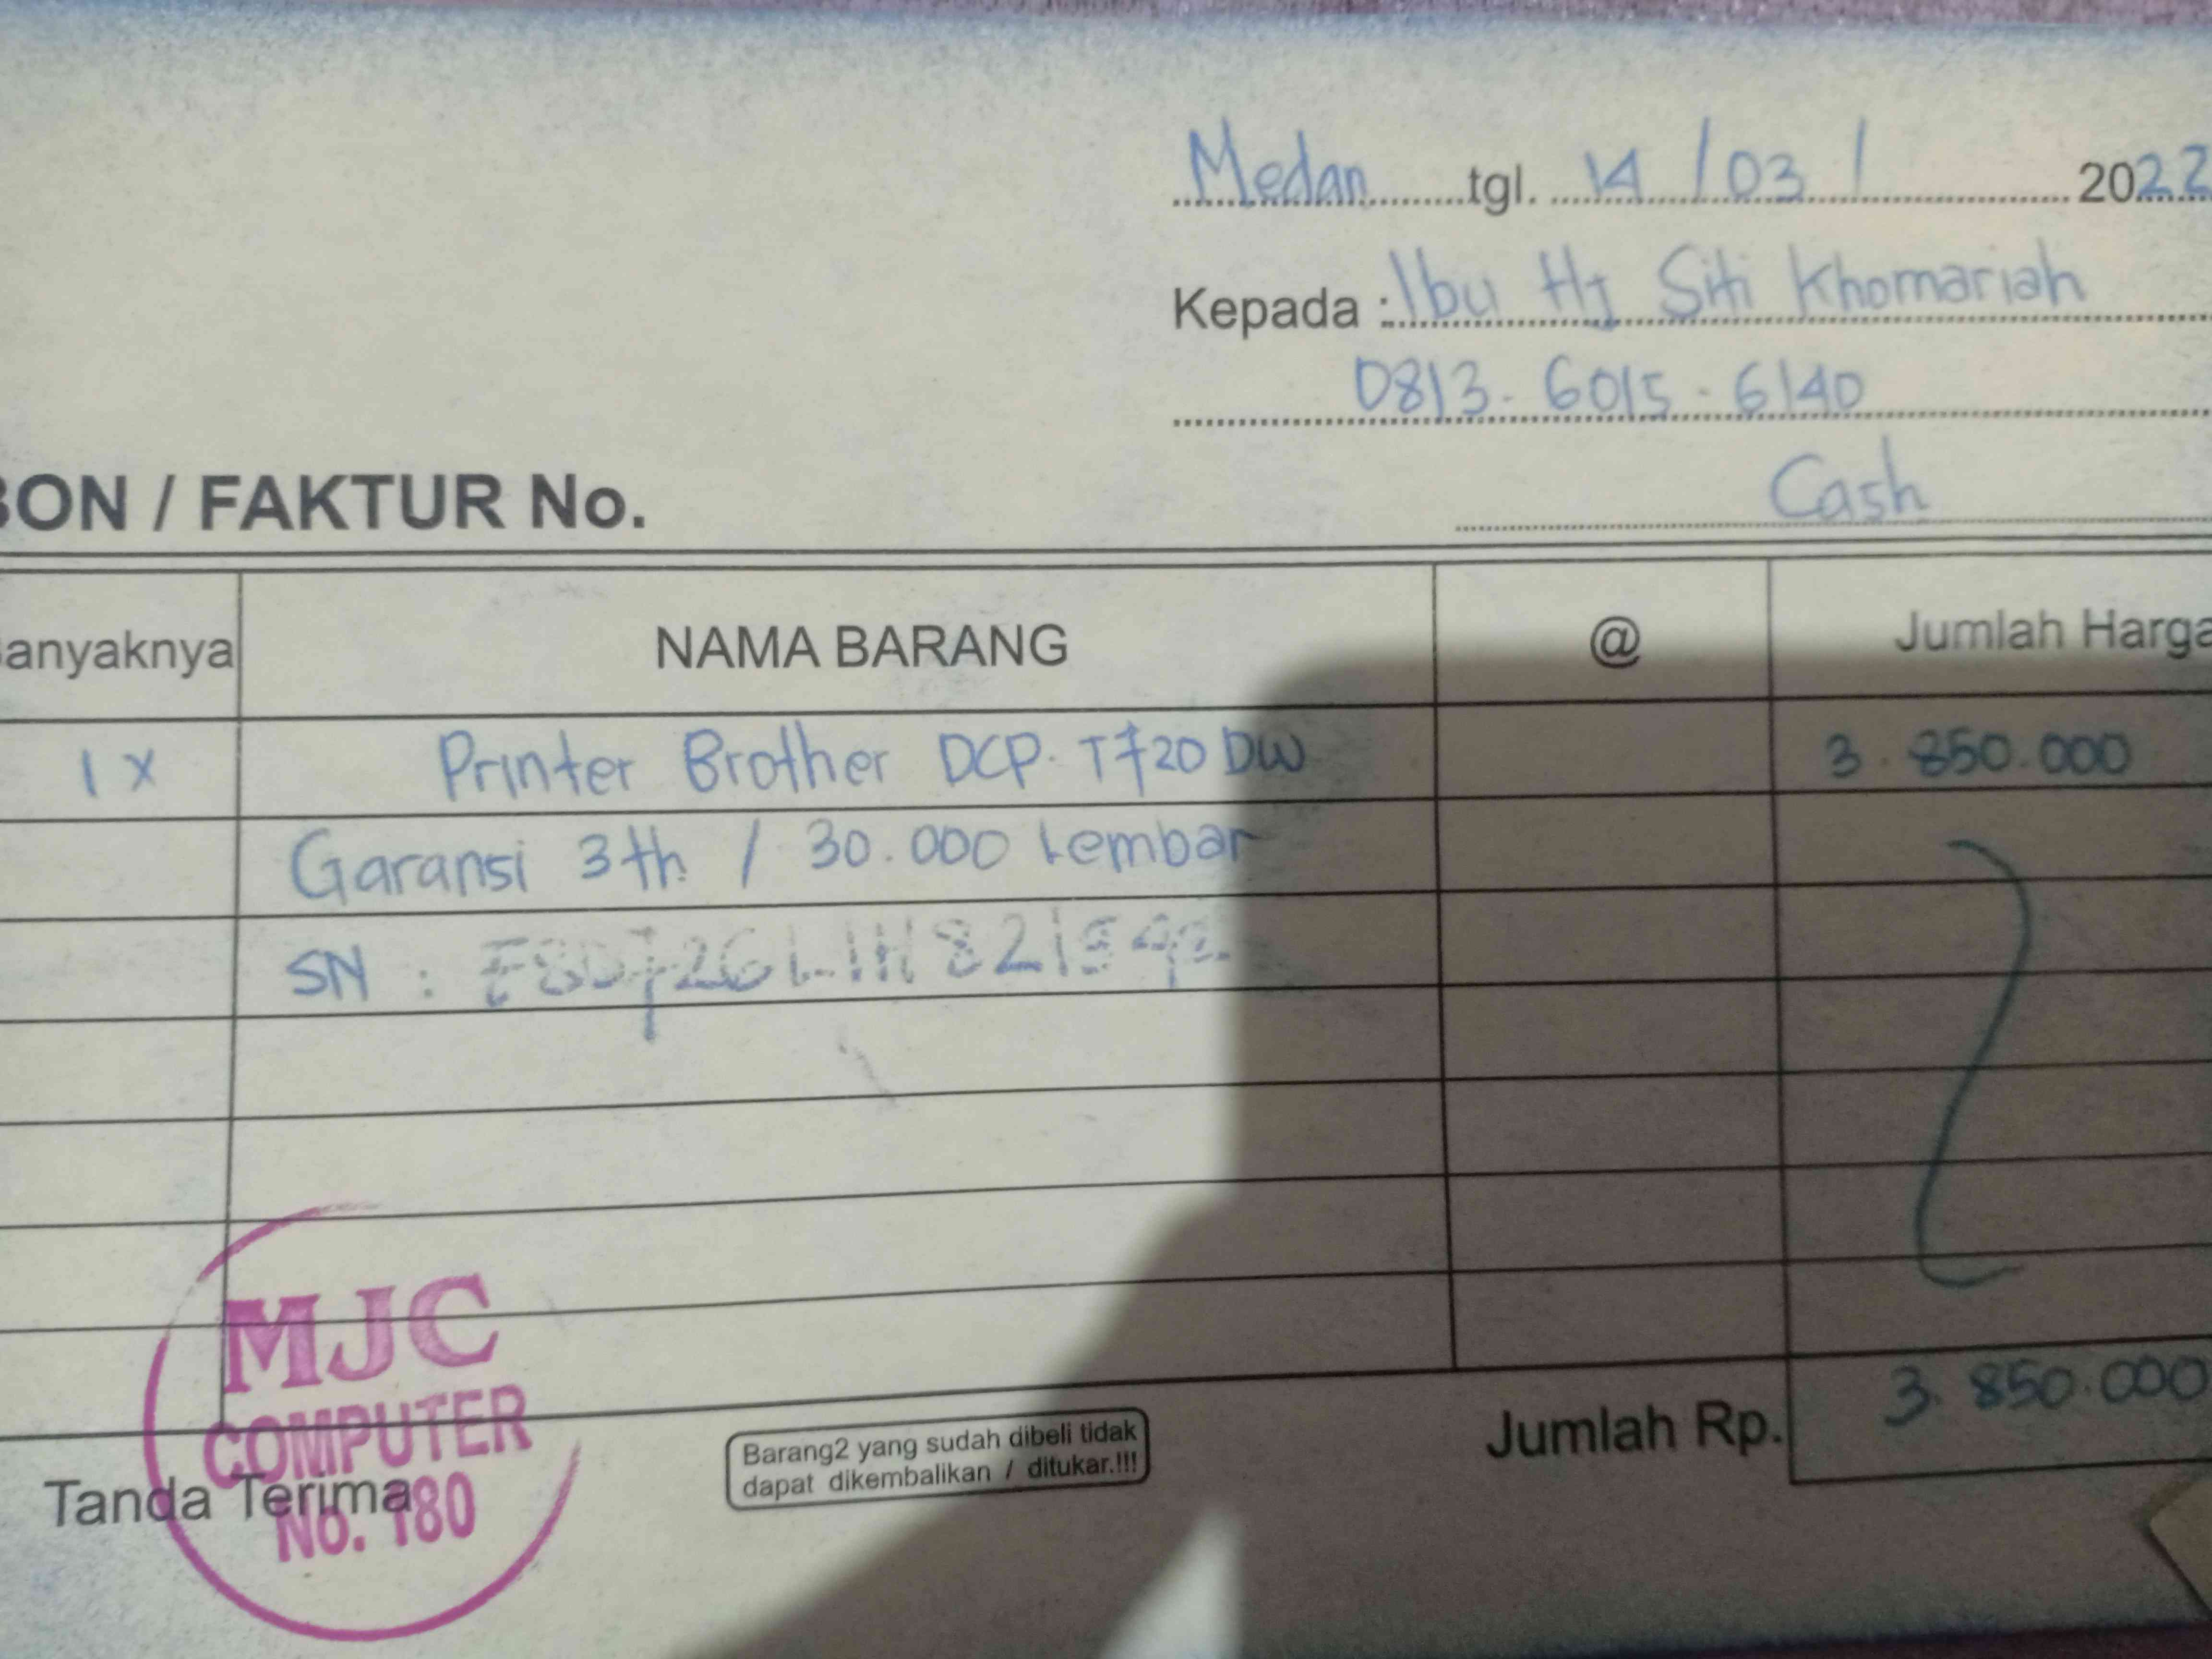 Medan tgl. 14 / 03 / 2022
Kepada : Ibu Hj Siti Khomariah
0813. 6015 . 6140
BON / FAKTUR No.
Cash
Banyaknya NAMA BARANG @ Jumlah Harga
1 x Printer Brother DCP. T720 DW 3.850.000
Garansi 3th / 30.000 Lembar
SN :
MJC
COMPUTER
No. 180
Tanda Terima
Barang2 yang sudah dibeli tidak
dapat dikembalikan / ditukar.!!!
Jumlah Rp. 3.850.000